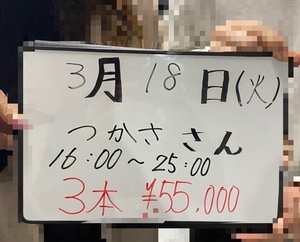 3月18日(火)
つかささん
16:00~25:00
3本 ¥55,000